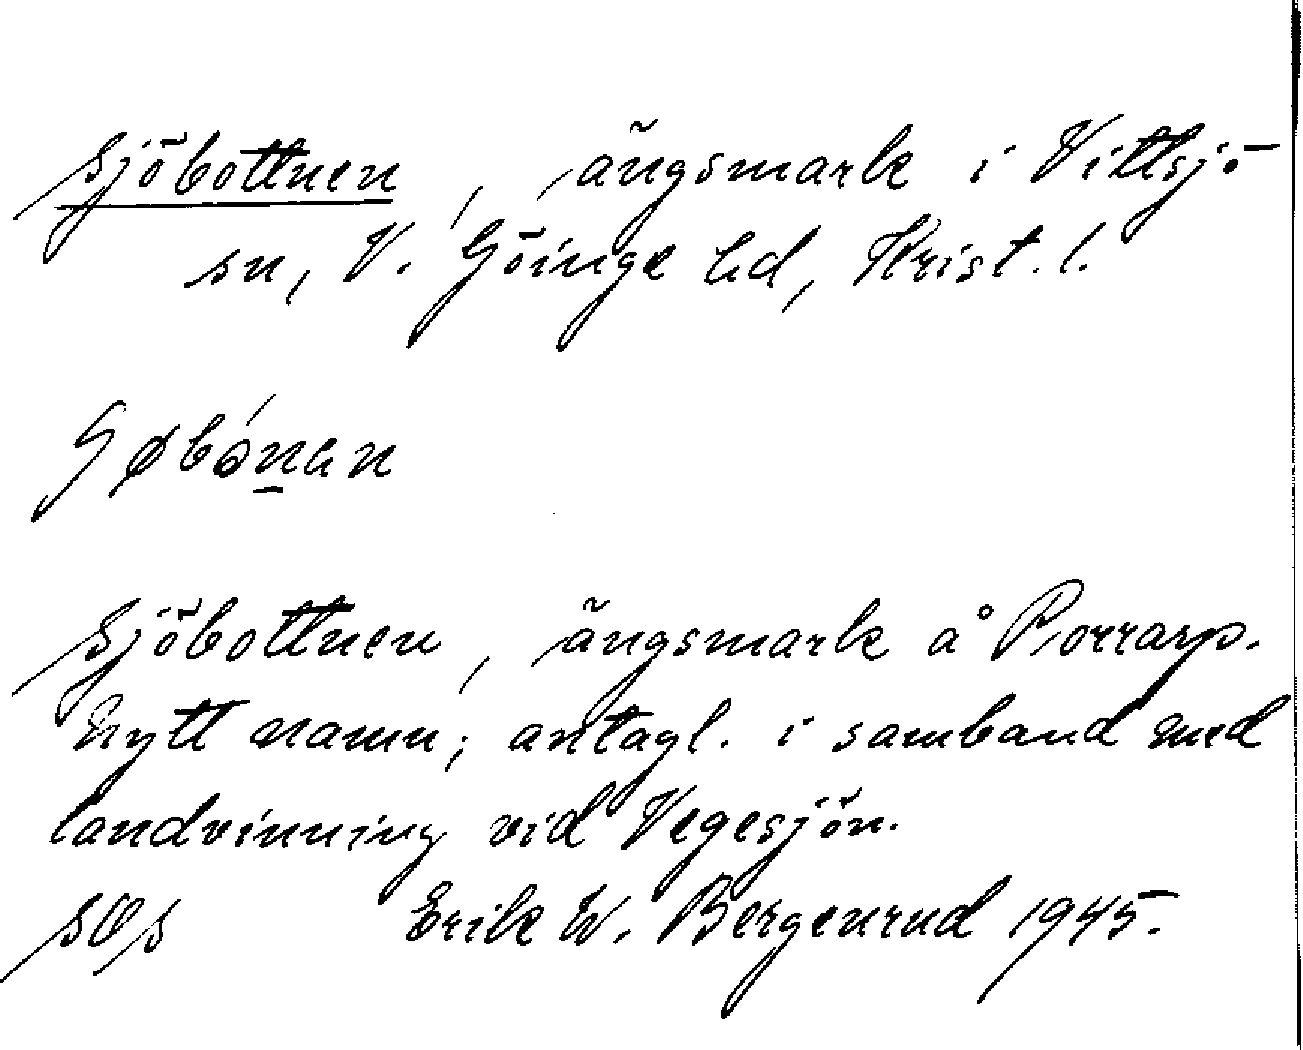 Sjöbottnen, ängsmark i Vittsjö
sn, V. Göinge hd, Krist. l.
Sjöbottnen, ängsmark å Porrarp.
Nytt namn; antagl. i samband med
landvinning vid Vegesjön.
Erik W. Bergenrud 1945.